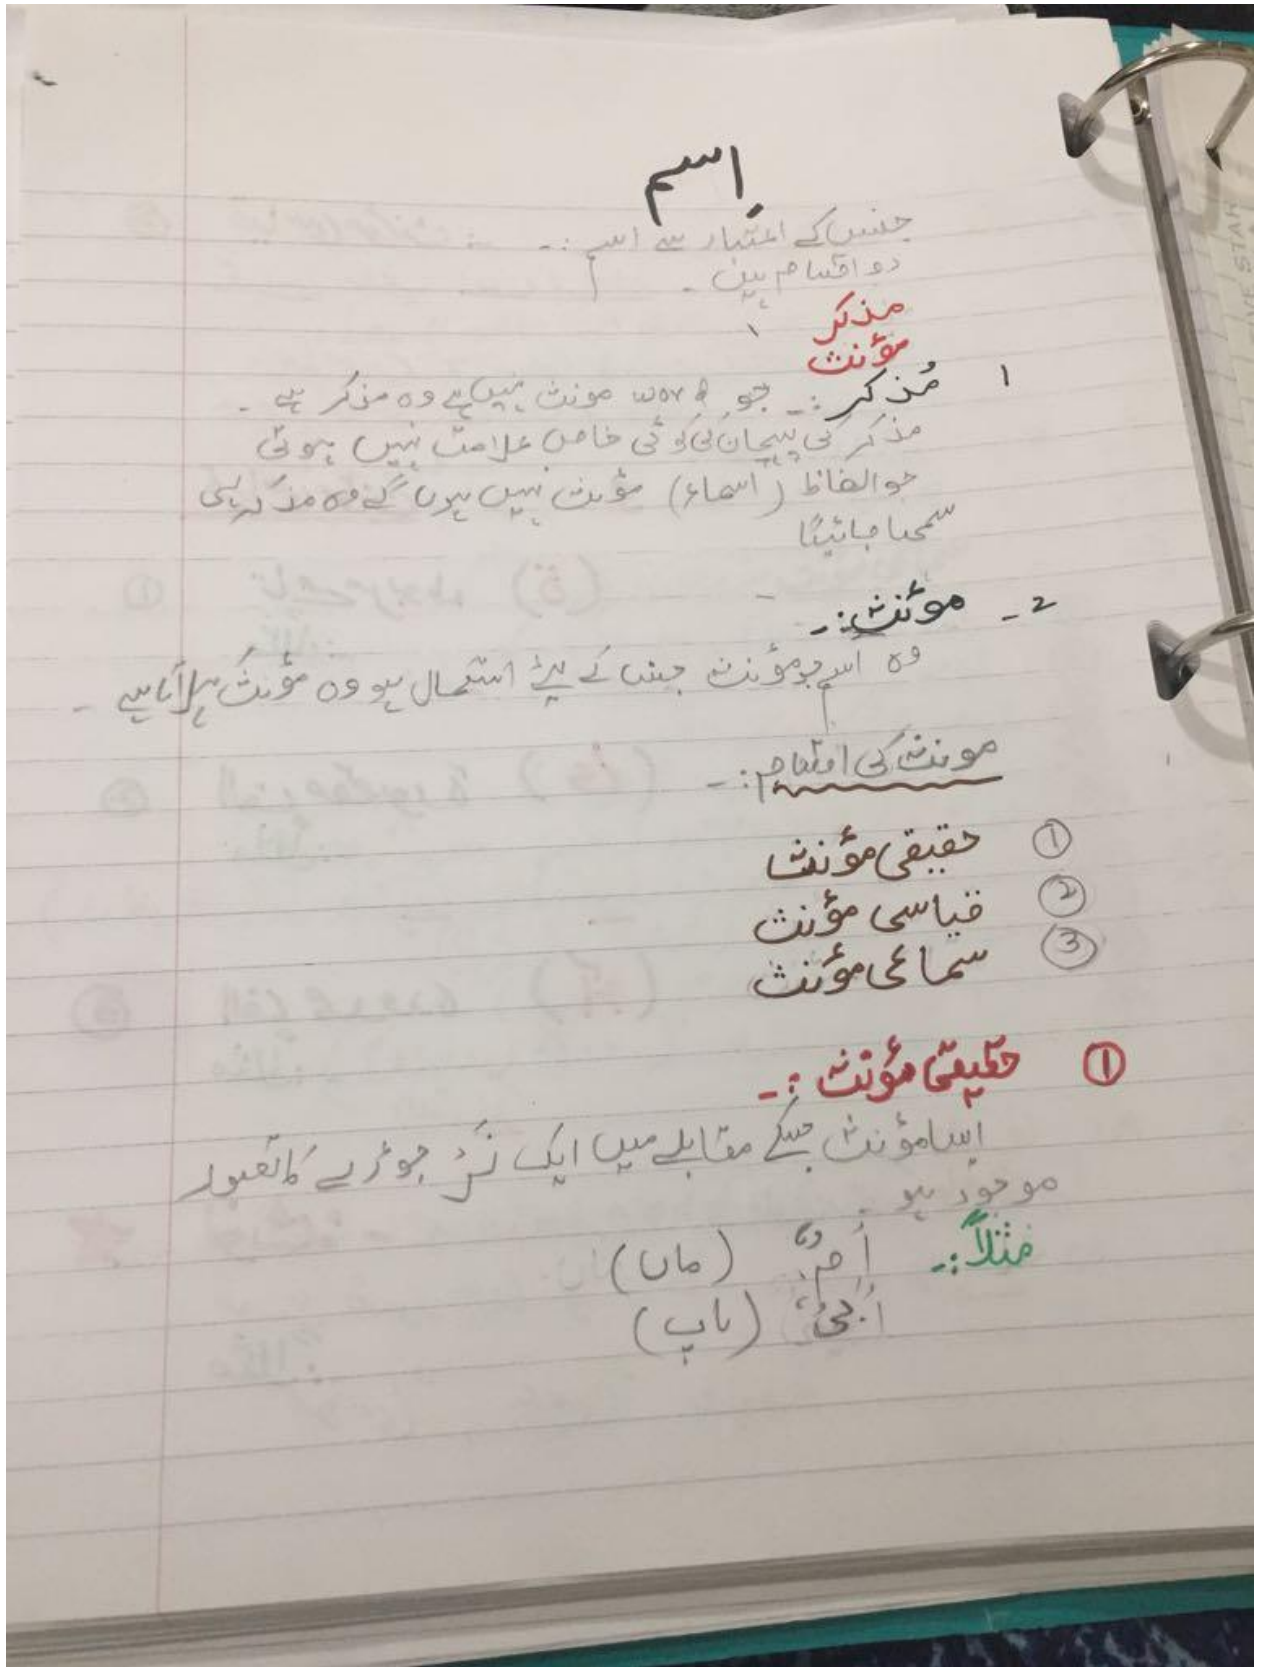 اِسم
جنس کے اعتبار سے اسم :-
دو اقسام ہیں -
مذکر
مؤنث
۱ مُذکر :- جو word مونث نہیں ہے وہ مذکر ہے -
مذکر کی پہچان کی کوئی خاص علامت نہیں ہوتی
جو الفاظ (اسماء) مؤنث نہیں ہوں گے وہ مذکر ہی
سمجھا جائیگا
2- موئنث :-
وہ اسم جو مؤنث جنس کے لیئے استعمال ہو وہ مؤنث کہلاتا ہے -
مونث کی اقسام :-
① حقیقی مؤنث
② قیاسی مؤنث
③ سماعی مؤنث
① حقیقی مؤنث :-
ایسا مؤنث جسکے مقابلے میں ایک نَر جوڑے کا تصور
موجود ہو -
مثلاً :- اُمٌّ (ماں)
(باپ)